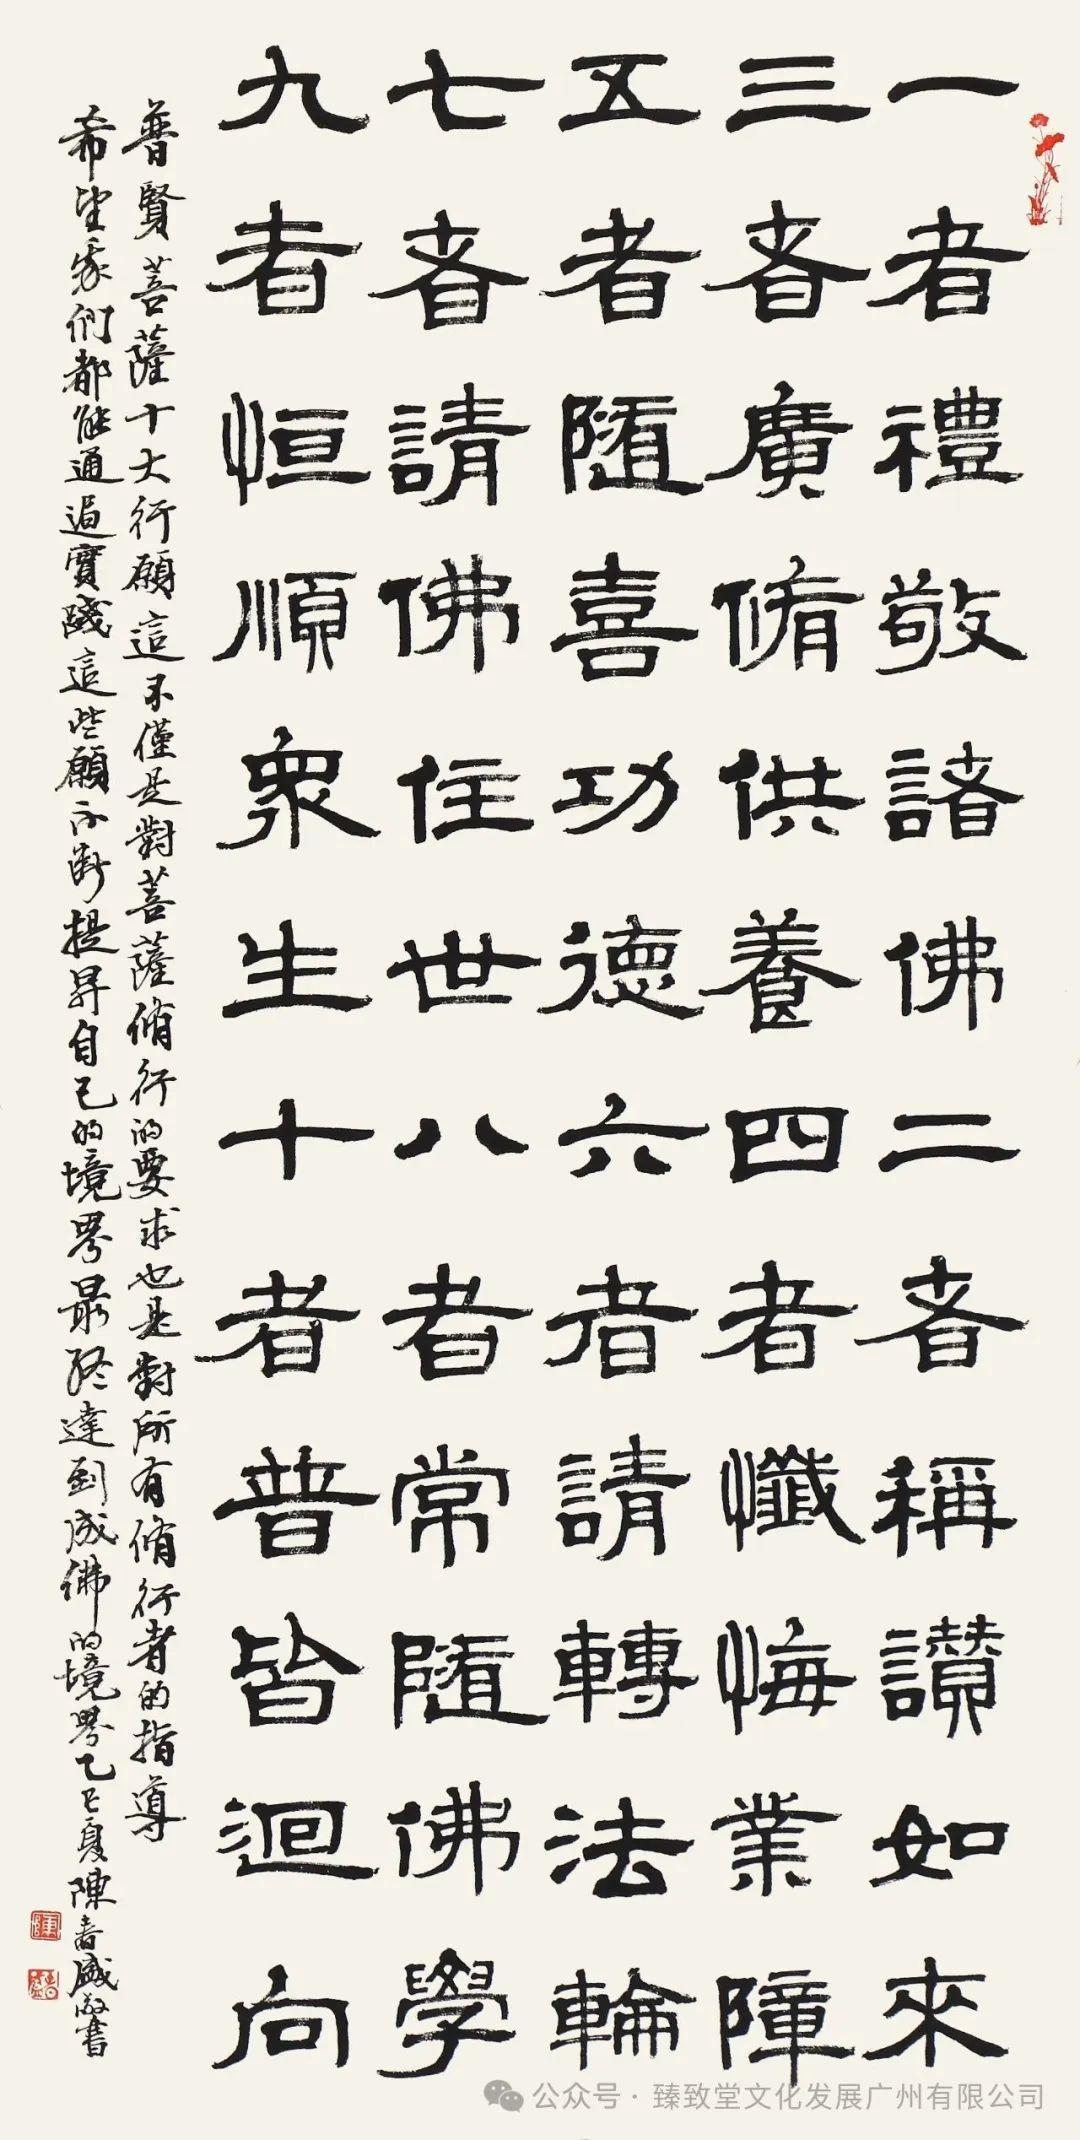 一者禮敬諸佛二者稱讃如來
三者廣脩供養四者懺悔業障
五者随喜功德六者請轉法輪
七者請佛住世八者常随佛學
九者恒順眾生十者普皆迴向
普賢菩薩十大行願這不僅是對菩薩脩行的要求也是對所有脩行者的指導
希望我們都能通過實踐這些願不斷提昇自己的境界最終達到成佛的境界乙巳夏陳春盛敬書
公众号·臻致堂文化发展广州有限公司